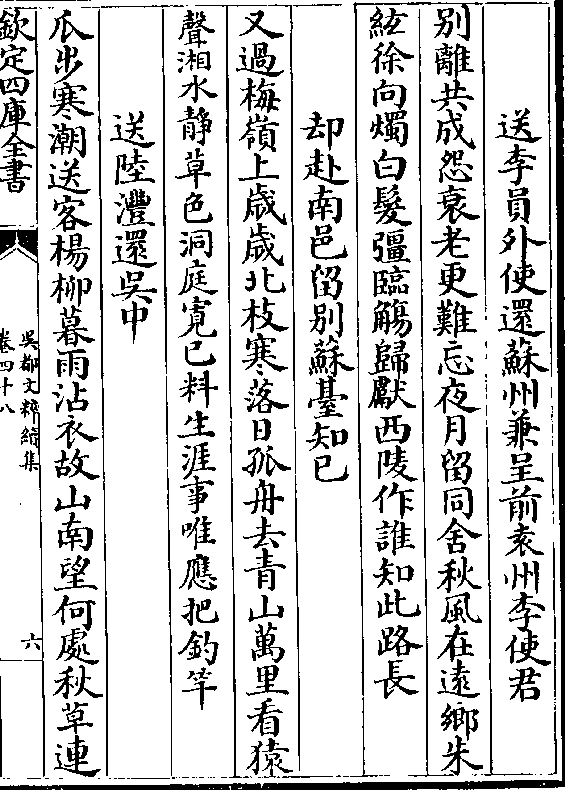 送李員外使還蘇州兼呈前袁州李使君
别離共成怨衰老更難忘夜月留同舍秋風在遠鄉朱
絃徐向燭白髮彊臨觴歸獻西陵作誰知此路長
却赴南邑留别蘇臺知已
又過梅嶺上歳歳北枝寒落日孤舟去青山萬里看猿
聲湘水静草色洞庭寛已料生涯事唯應把釣竿
送陸灃還吳中
瓜步寒潮送客楊柳暮雨沾衣故山南望何處秋草連
欽定四庫全書
吳都文粹續集
卷四十八
六